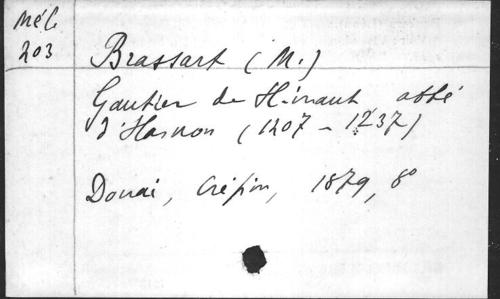 Mél.
203
Brassart (M.)
Gautier de Hinaut abbé
d'Hasnon (1207 - 1237)
Douai, Crépin, 1879, 8°